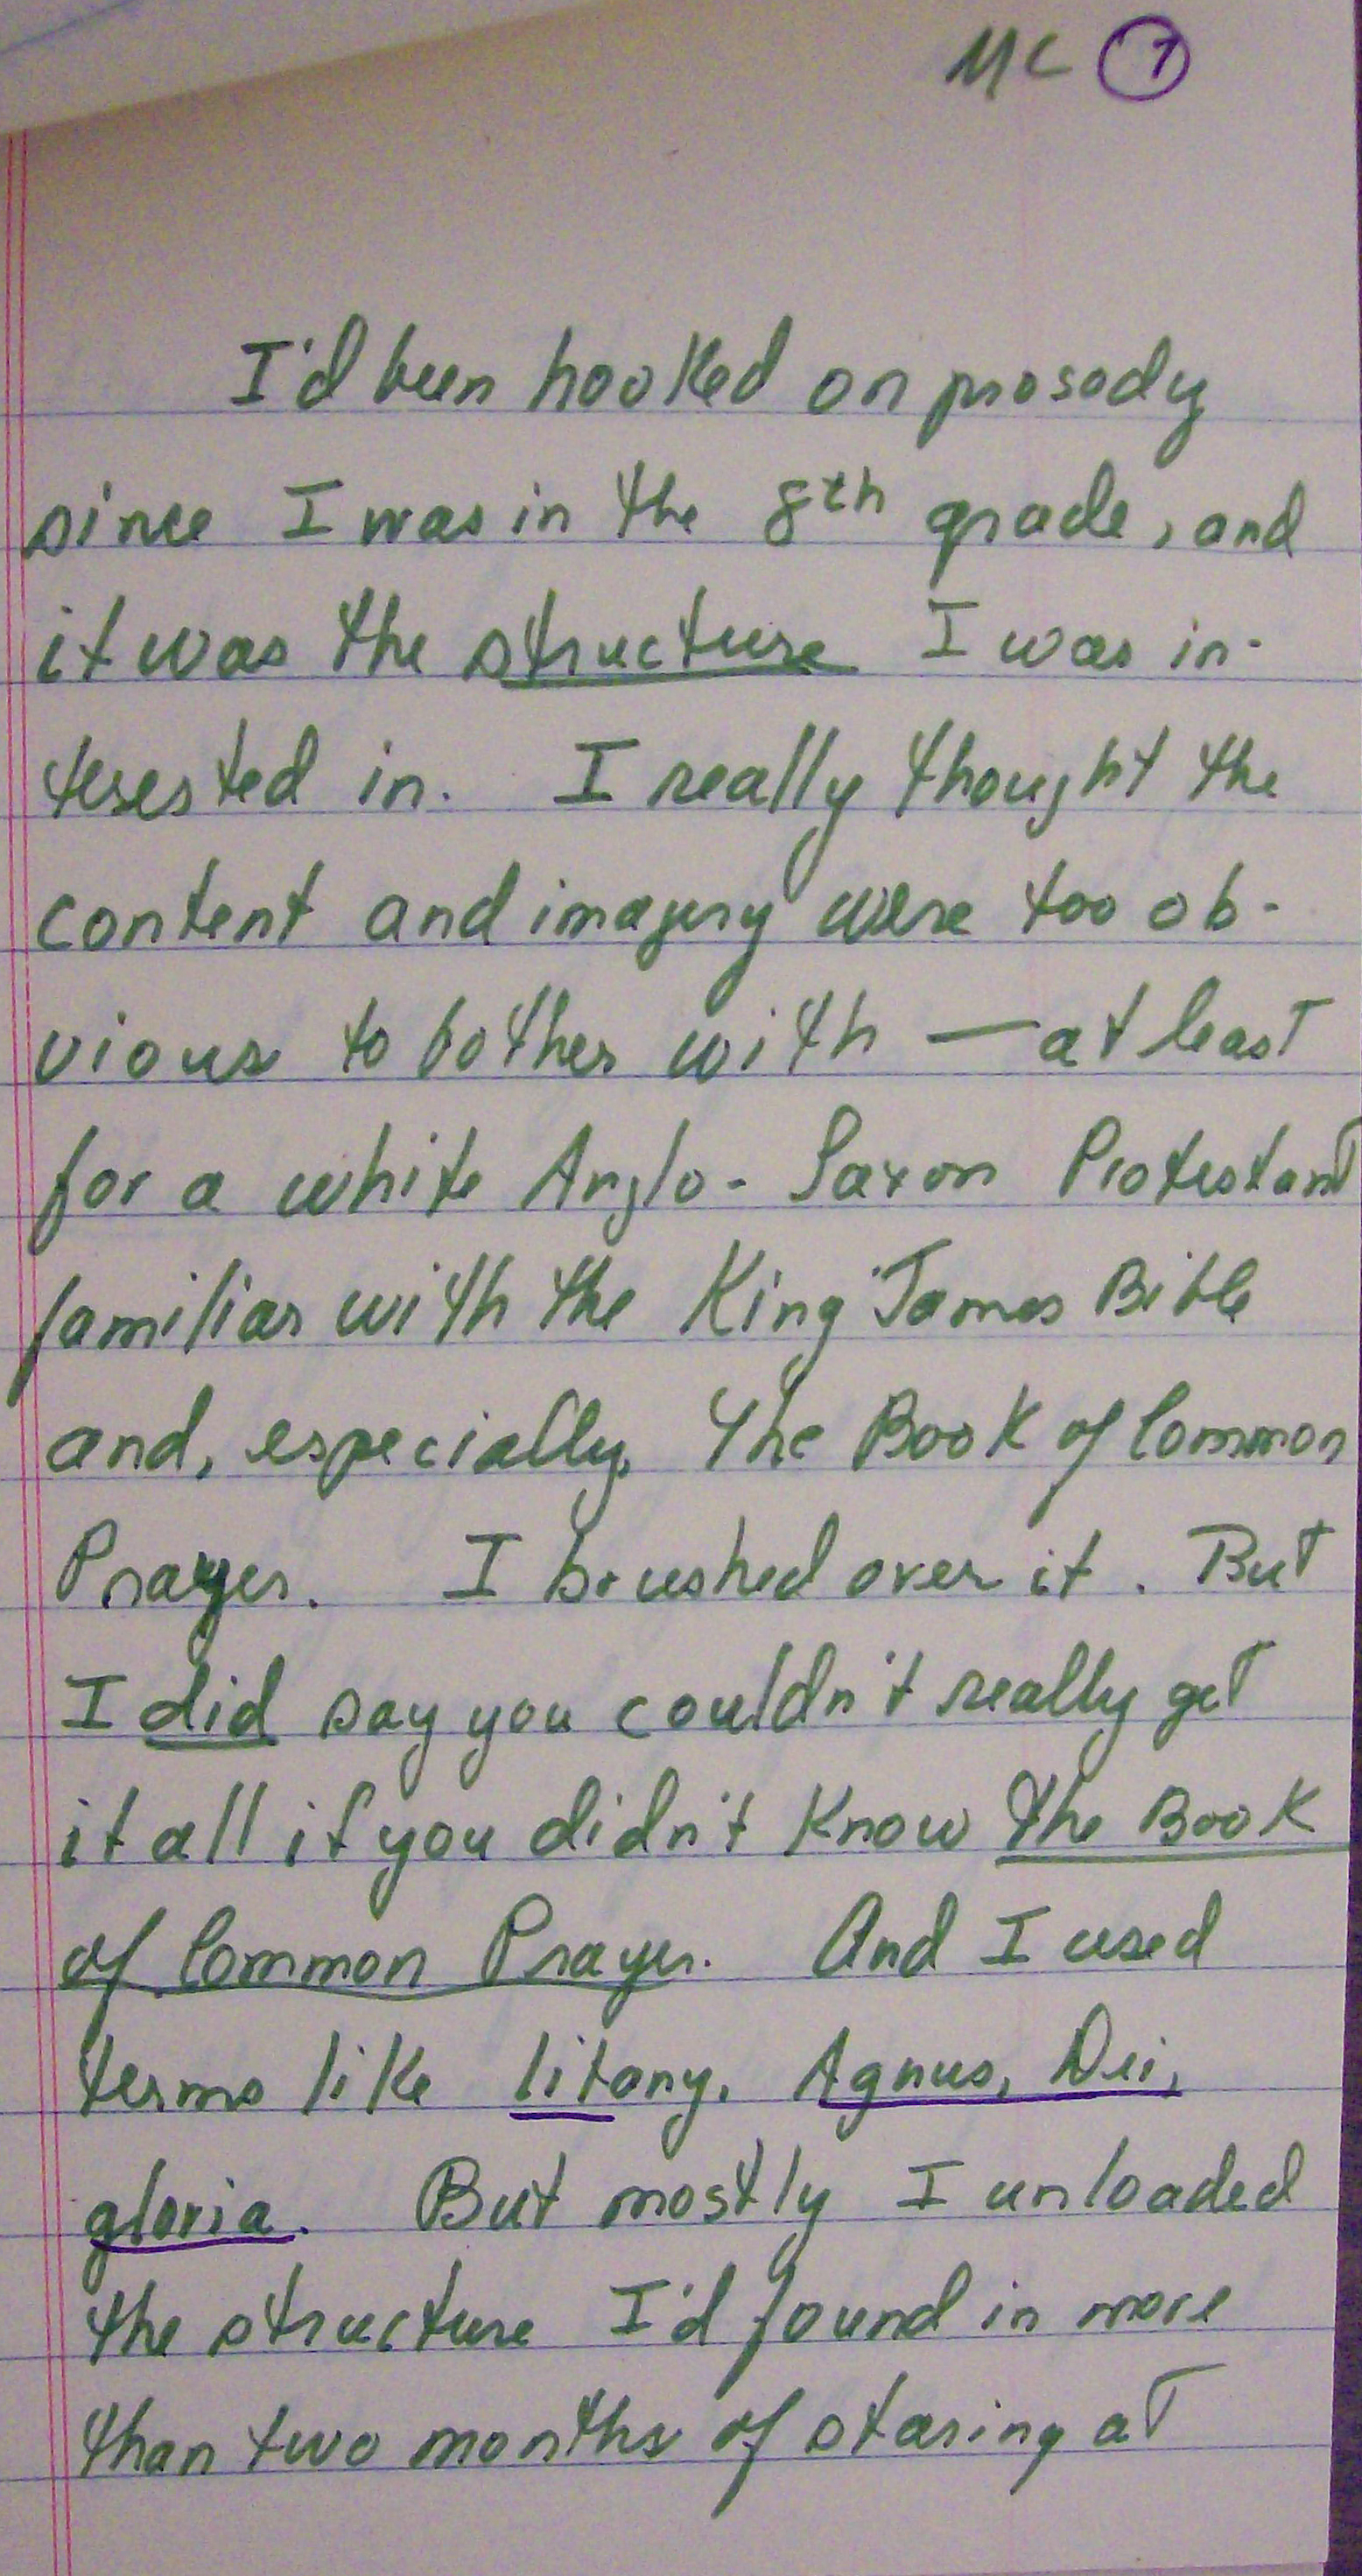 MC 1
I'd been hooked on prosody
since I was in the 8th grade, and
it was the structure I was in-
terested in. I really thought the
content and imagery were too ob-
vious to bother with — at least
for a white Anglo-Saxon Protestant
familiar with the King James Bible
and, especially, The Book of Common
Prayer. I brushed over it. But
I did say you couldn't really get
it all if you didn't know the Book
of Common Prayer. And I used
terms like litany, Agnus, Dei,
gloria. But mostly I unloaded
the structure I'd found in more
than two months of staring at